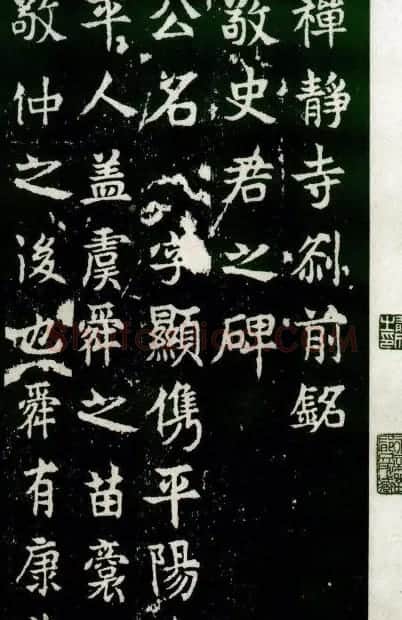 禪靜寺刹前銘
敬史君之碑
公名 字顯儁平陽
平人盖虞舜之苗裔
敬仲之後也舜有康